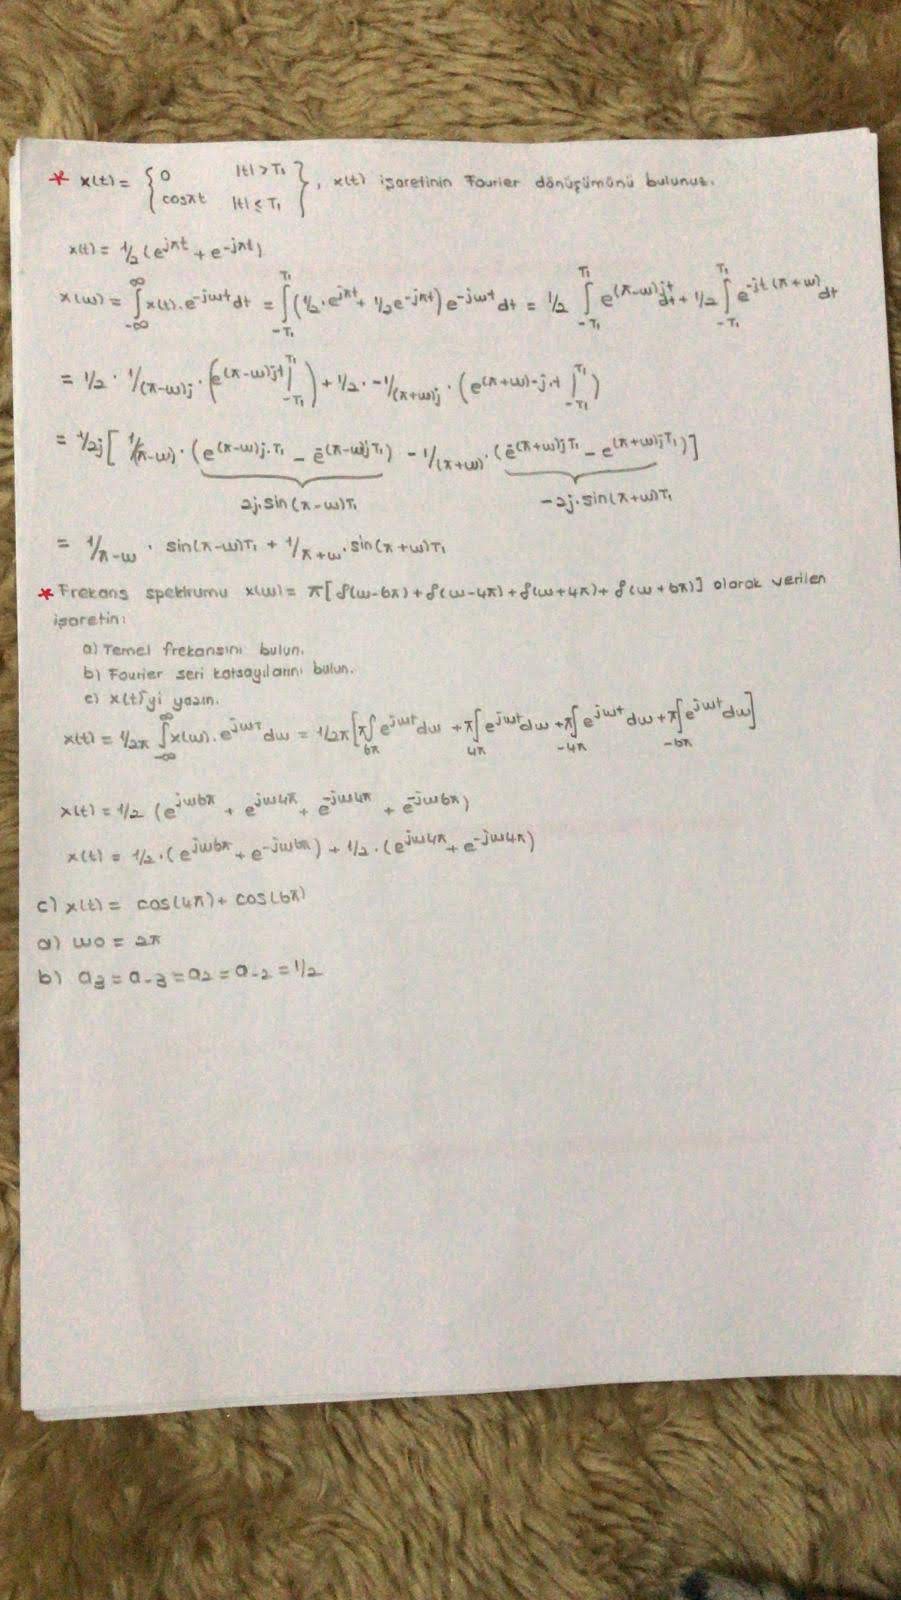 * x(t) = { 0 |t| > T₁
cosπt |t| ≤ T₁ }, x(t) işaretinin Fourier dönüşümünü bulunuz.
x(t) = 1/2 (e^jπt + e^-jπt)
x(ω) = ∫_-∞^∞ x(t).e^-jωt dt = ∫_-T₁^T₁ (1/2.e^jπt + 1/2e^-jπt) e^-jωt dt = 1/2 ∫_-T₁^T₁ e^(π-ω)jt dt + 1/2 ∫_-T₁^T₁ e^-jt(π+ω) dt
= 1/2 . 1/(π-ω)j . (e^(π-ω)jt ]_-T₁^T₁) + 1/2 . -1/(π+ω)j . (e^(π+ω)-j.t ]_-T₁^T₁)
= 1/2j [ 1/(π-ω) . (e^(π-ω)j.T₁ - e^-(π-ω)jT₁) - 1/(π+ω) . (e^-(π+ω)jT₁ - e^(π+ω)jT₁) ]
2j.sin(π-ω)T₁ -2j.sin(π+ω)T₁
= 1/π-ω . sin(π-ω)T₁ + 1/π+ω . sin(π+ω)T₁
* Frekans spektrumu x(ω) = π[δ(ω-6π) + δ(ω-4π) + δ(ω+4π) + δ(ω+6π)] olarak verilen
işaretin:
a) Temel frekansını bulun.
b) Fourier seri katsayılarını bulun.
c) x(t)'yi yazın.
x(t) = 1/2π ∫_-∞^∞ x(ω).e^jωt dω = 1/2π [π∫_6π e^jωt dω + π∫_4π e^jωt dω + π∫_-4π e^jωt dω + π∫_-6π e^jωt dω]
x(t) = 1/2 (e^jω6π + e^jω4π + e^-jω4π + e^-jω6π)
x(t) = 1/2.(e^jω6π + e^-jω6π) + 1/2.(e^jω4π + e^-jω4π)
c) x(t) = cos(4π) + cos(6π)
a) ω0 = 2π
b) a₃ = a₋₃ = a₂ = a₋₂ = 1/2